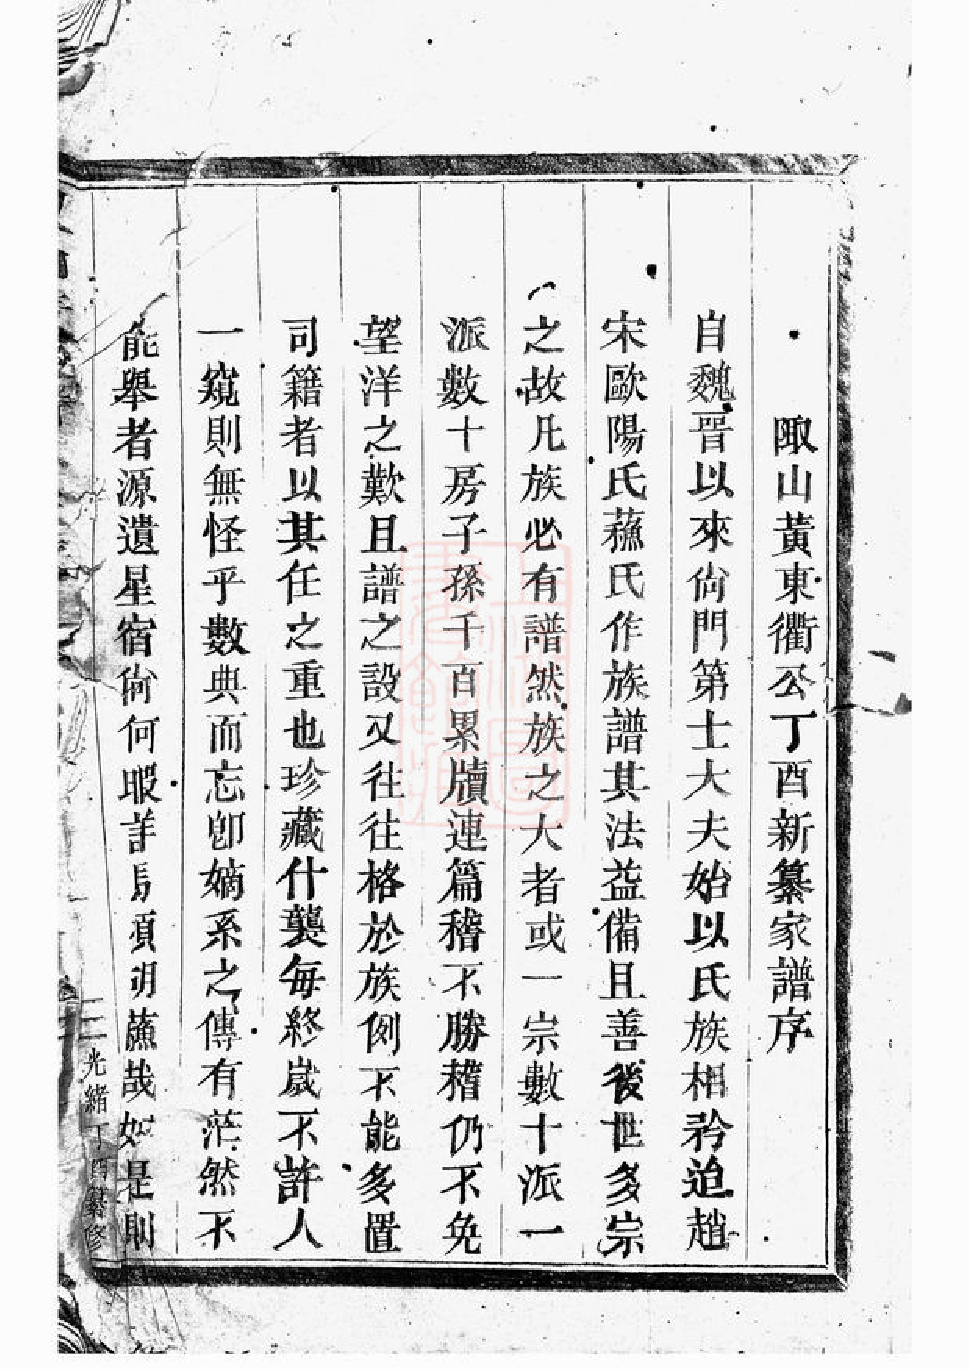 陬山黃東衢公丁酉新纂家譜序
自魏晋以來尙門第士大夫始以氏族相矜迨趙
宋歐陽氏蘓氏作族譜其法益備且善後世多宗
之故凡族必有譜然族之大者或一宗數十派一
派數十房子孫千百累牘連篇稽不勝稽仍不免
望洋之歎且譜之設又往往格於族例不能多置
司籍者以其任之重也珍藏什襲每終歲不許人
一窺則無怪乎數典而忘卽嫡系之傳有茫然不
能舉者源遺星宿尙何暇詳馬項胡蘓哉如是則
光緒丁酉纂修